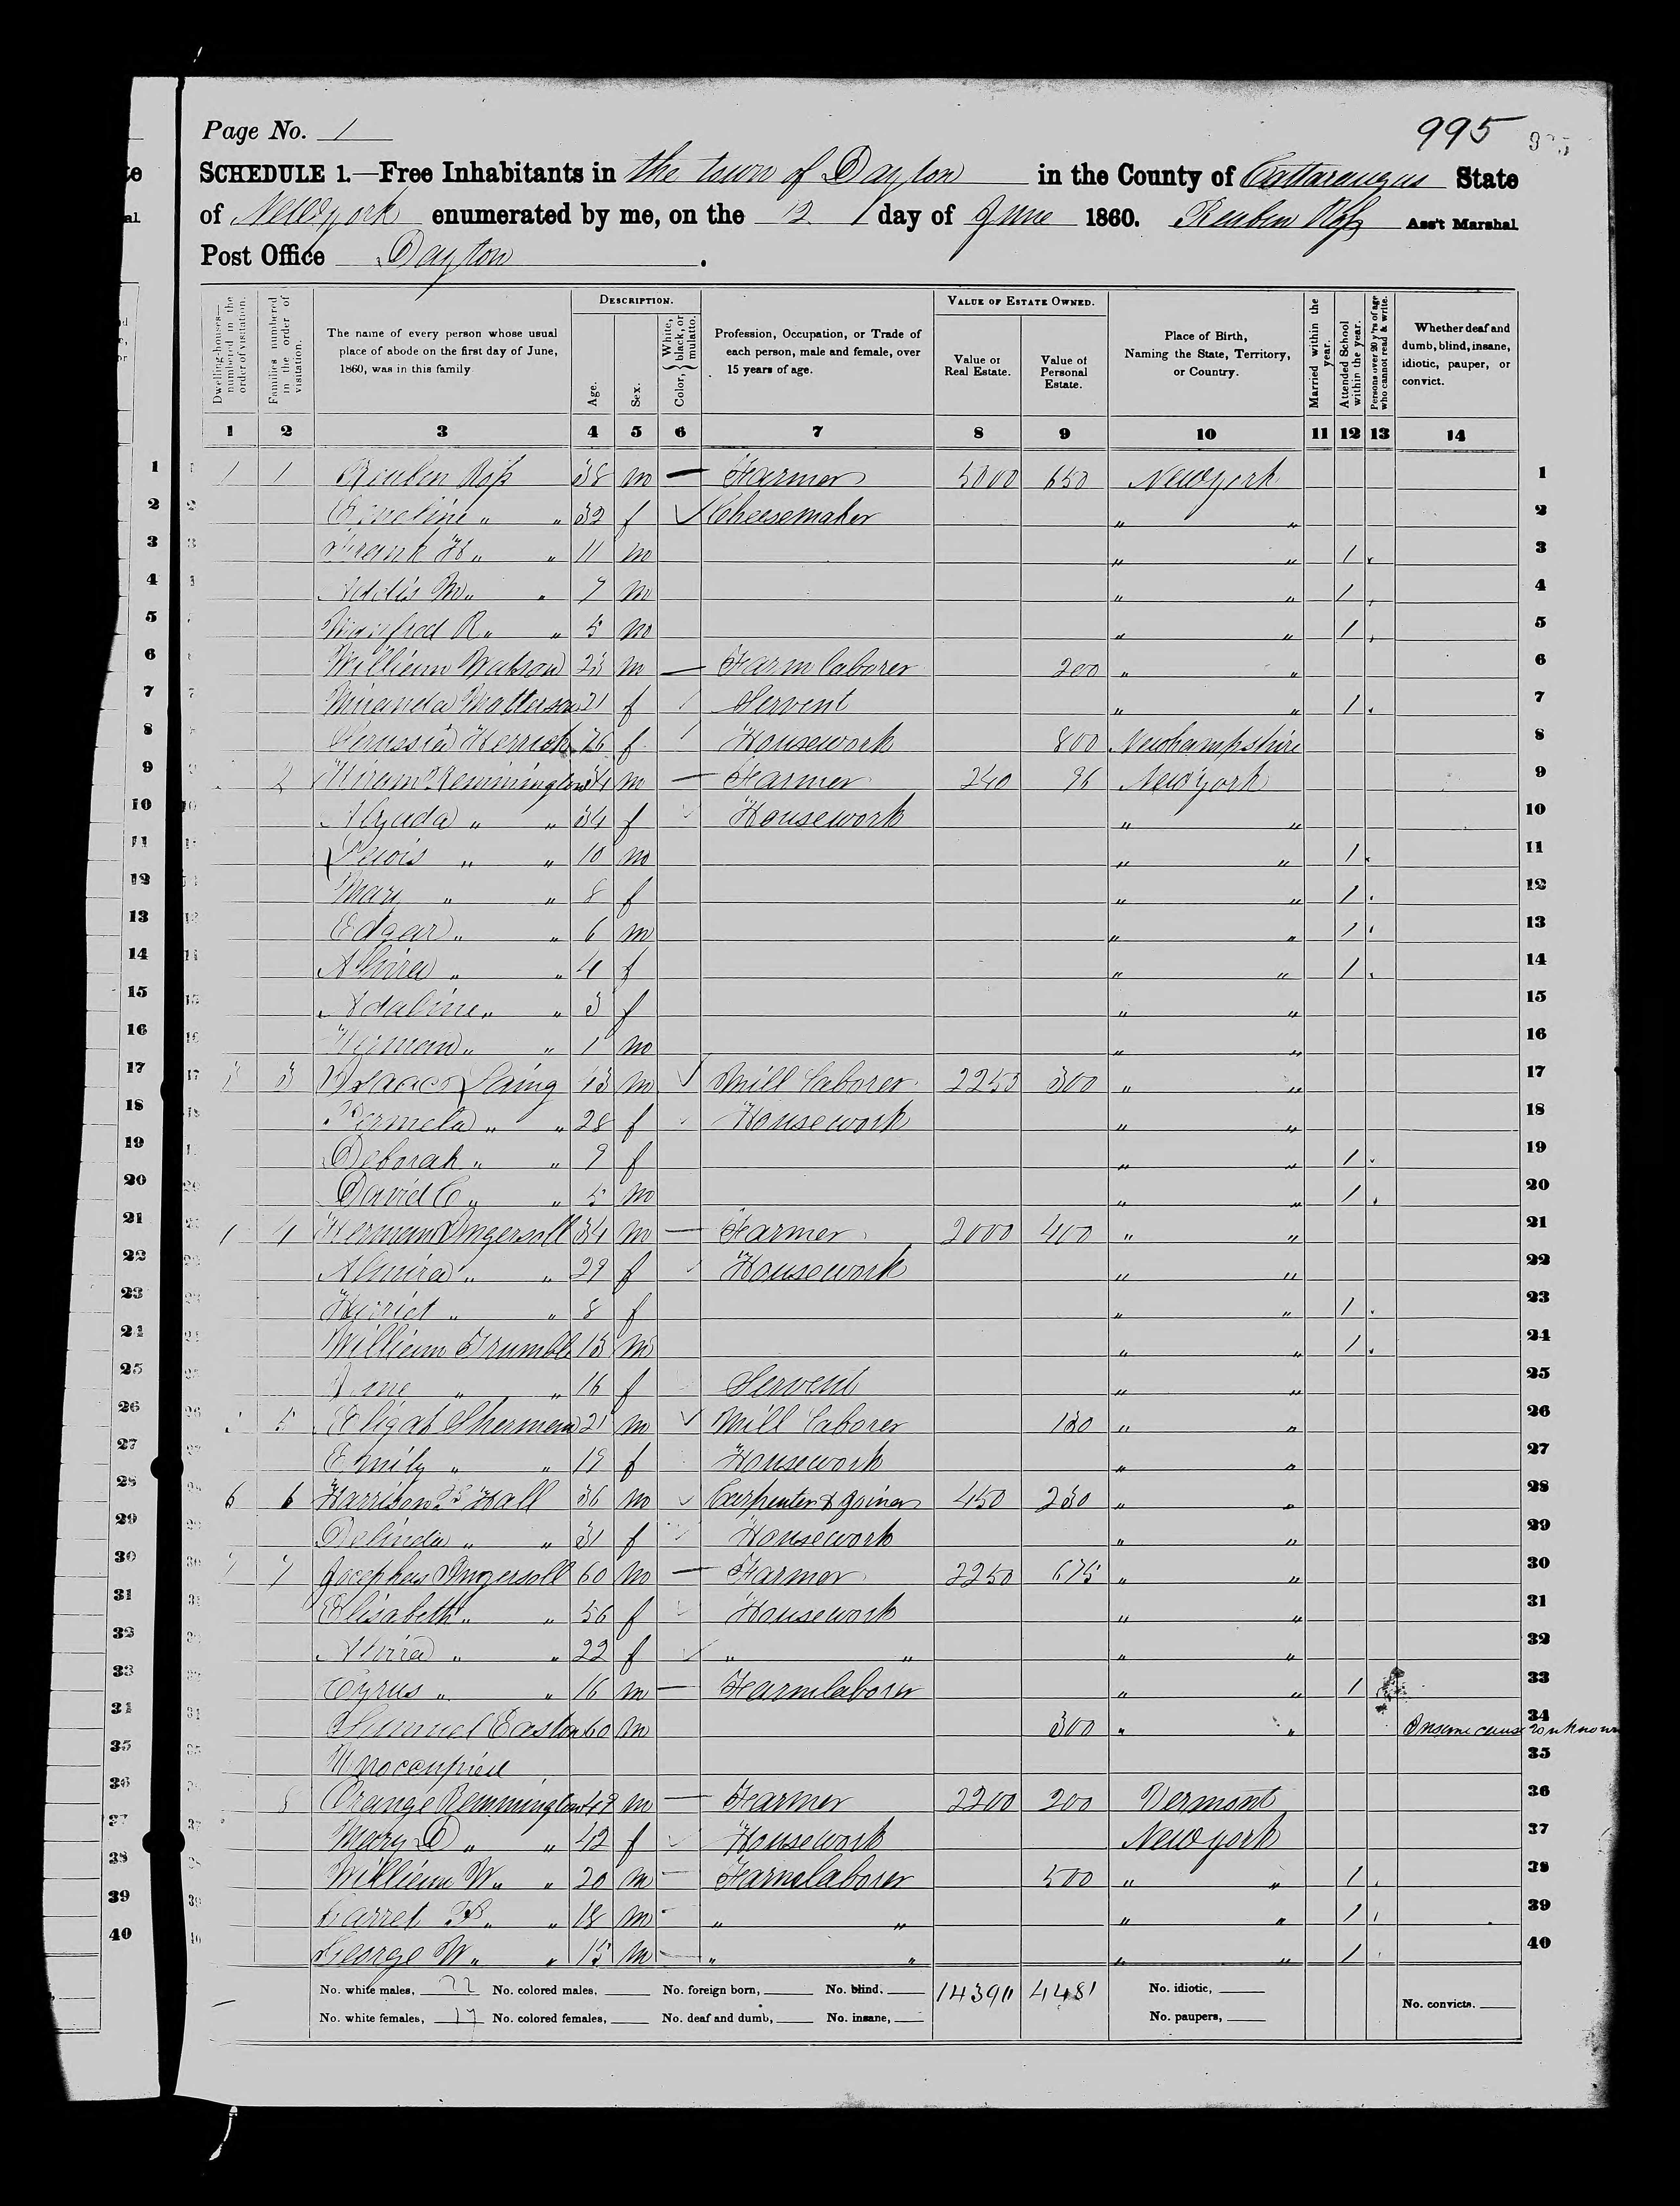 Page No. 1
995
SCHEDULE 1.—Free Inhabitants in the town of Dayton in the County of Cattaraugus State
of Newyork enumerated by me, on the 12 day of June 1860. Reuben Roſs Ass't Marshal
Post Office Dayton .
DESCRIPTION. VALUE OF ESTATE OWNED.
Dwelling-houses—numbered in the order of visitation.
Families numbered in the order of visitation.
The name of every person whose usual place of abode on the first day of June, 1860, was in this family
Age.
Sex.
Color, White, black, or mulatto.
Profession, Occupation, or Trade of each person, male and female, over 15 years of age.
Value of Real Estate.
Value of Personal Estate.
Place of Birth, Naming the State, Territory, or Country.
Married within the year.
Attended School within the year.
Persons over 20 y'rs of age who cannot read & write.
Whether deaf and dumb, blind, insane, idiotic, pauper, or convict.
1 2 3 4 5 6 7 8 9 10 11 12 13 14
1 1 1 Reuben Roſs 38 m — Farmer 5000 650 Newyork 1
2 " " 32 f ✓ Cheesemaker " " 2
3 Frank H " " 11 m " " 1 3
4 M " " 7 m " " 1 4
5 R " " 5 m " " 1 5
6 William Watson 23 m — Farm laborer 200 " " 6
7 Miranda Matterson 21 f / Servent " " 1 7
8 Herrick 76 f / Housework 800 Newhampshire 8
9 2 Hiram Remmington 34 m — Farmer 240 96 Newyork 9
10 " " 34 f ✓ Housework " " 10
11 Lewis " " 10 m " " 1 11
12 Mary " " 8 f " " 1 12
13 Edgar " " 6 m " " 1 13
14 " " 4 f " " 1 14
15 Adaline " " 3 f " " 15
16 Hermon " " 1 m " " 16
17 3 3 Isaac Laing m ✓ Mill laborer 2250 300 " " 17
18 Permela " " 28 f ✓ Housework " " 18
19 Deborah " " 9 f " " 1 19
20 David C " " 5 m " " 1 20
21 4 Herman Ingersoll 34 m — Farmer 2000 400 " " 21
22 Almira " " 29 f ✓ Housework " " 22
23 Harriet " " 8 f " " 1 23
24 William Trumble 13 m " " 1 24
25 Jane " " 16 f Servent " " 25
26 5 Eligah Shermen 21 m ✓ Mill laborer 130 " " 26
27 Emily " " 19 f Housework " " 27
28 6 6 Harrison Hall 36 m ✓ Carpenter & Joiner 450 230 " " 28
29 Delinda " " 31 f ✓ Housework " " 29
30 7 7 Josephus Ingersoll 60 m — Farmer 2250 675 " " 30
31 Elisabeth " " 56 f ✓ Housework " " 31
32 " " 22 f ✓ " " " " 32
33 Cyrus " " 16 m — Farmlaborer " " 1 33
34 Easton 60 m 300 " " Insane cause unknown 34
35 Unoccupied 35
36 8 Orange Remmington 49 m — Farmer 2200 200 Vermont 36
37 Mary D " " 42 f ✓ Housework Newyork 37
38 William W " " 20 m — Farmlaborer 500 " " 1 38
39 B " " 18 m - " " " " 1 39
40 George W " " 15 m — " " " " 1 40
No. white males, 22 No. colored males, No. foreign born, No. blind, 14390 4481 No. idiotic,
No. white females, 17 No. colored females, No. deaf and dumb, No. insane, No. paupers, No. convicts.